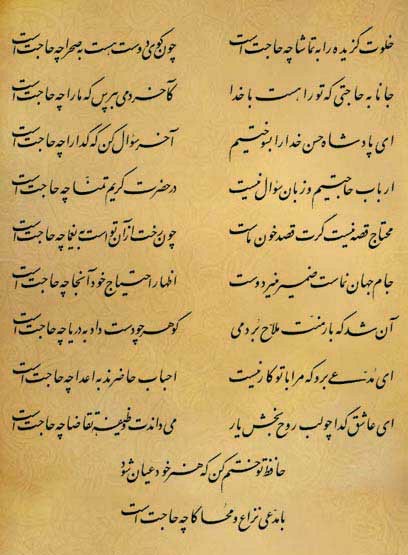 خلوت گزیده را به تماشا چه حاجت است چون کوی دوست هست به صحرا چه حاجت است
جانا به حاجتی که تو را هست با خدا کآخر دمی بپرس که ما را چه حاجت است
ای پادشاه حسن خدا را بسوختیم آخر سؤال کن که گدا را چه حاجت است
ارباب حاجتیم و زبان سؤال نیست در حضرت کریم تمنّا چه حاجت است
محتاج قصه نیست گرت قصد خون ماست چون رخت از آن تو است به یغما چه حاجت است
جام جهان نماست ضمیر منیر دوست اظهار احتیاج خود آنجا چه حاجت است
آن شد که بار منت ملاح بردمی گوهر چو دست داد به دریا چه حاجت است
ای مدّعی برو که مرا با تو کار نیست احباب حاضرند به اعدا چه حاجت است
ای عاشق گدا چو لب روح بخش یار می داندت وظیفه تقاضا چه حاجت است
حافظ تو ختم کن که هنر خود عیان شود
با مدعی نزاع و محاکا چه حاجت است